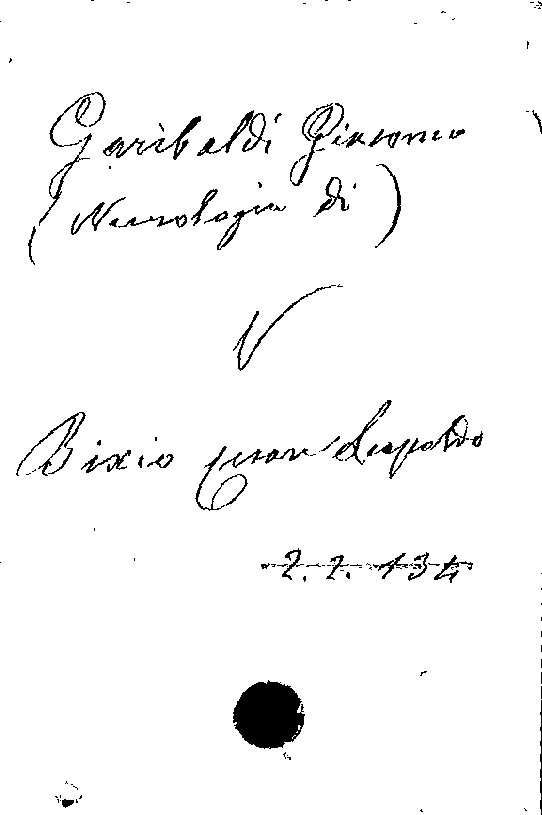 Garibaldi Giacomo
(Necrologia di)
V
Bixio Cesare Leopoldo
2.2.134